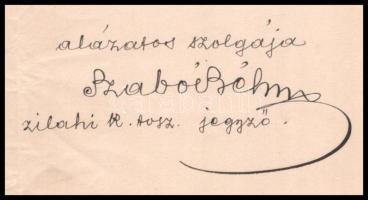 alázatos szolgája
Szabó Böhm
zilahi k. tvsz. jegyző.